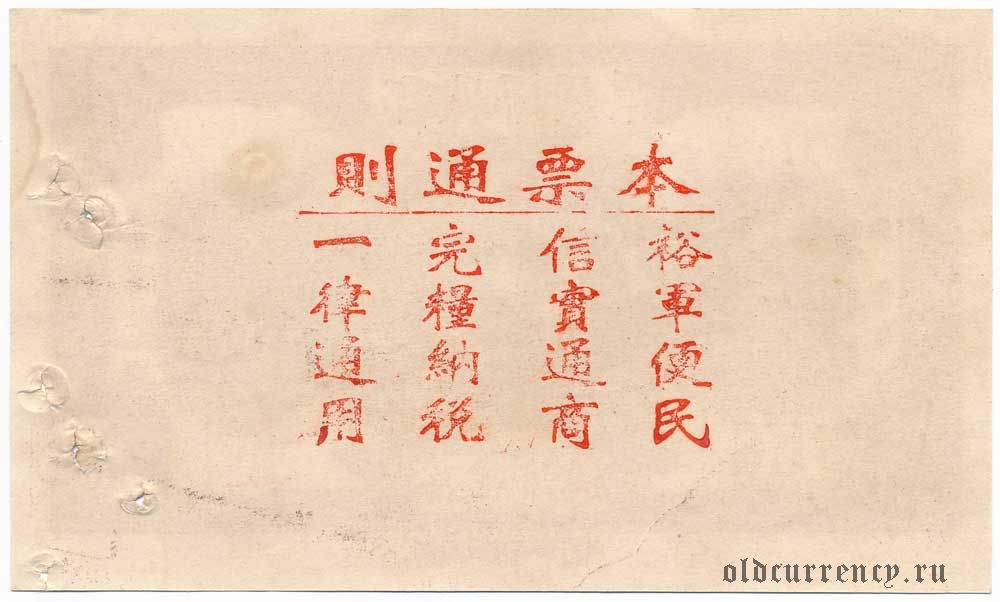 本票通則
裕軍便民
信實通商
完糧納税
一律通用
oldcurrency.ru